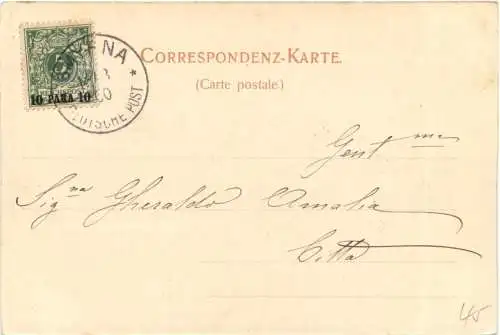 CORRESPONDENZ-KARTE.
(Carte postale.)
5
10 PARA 10
DEUTSCHE POST
Gent ma
Sig na Gheraldo Amalia
Città
45